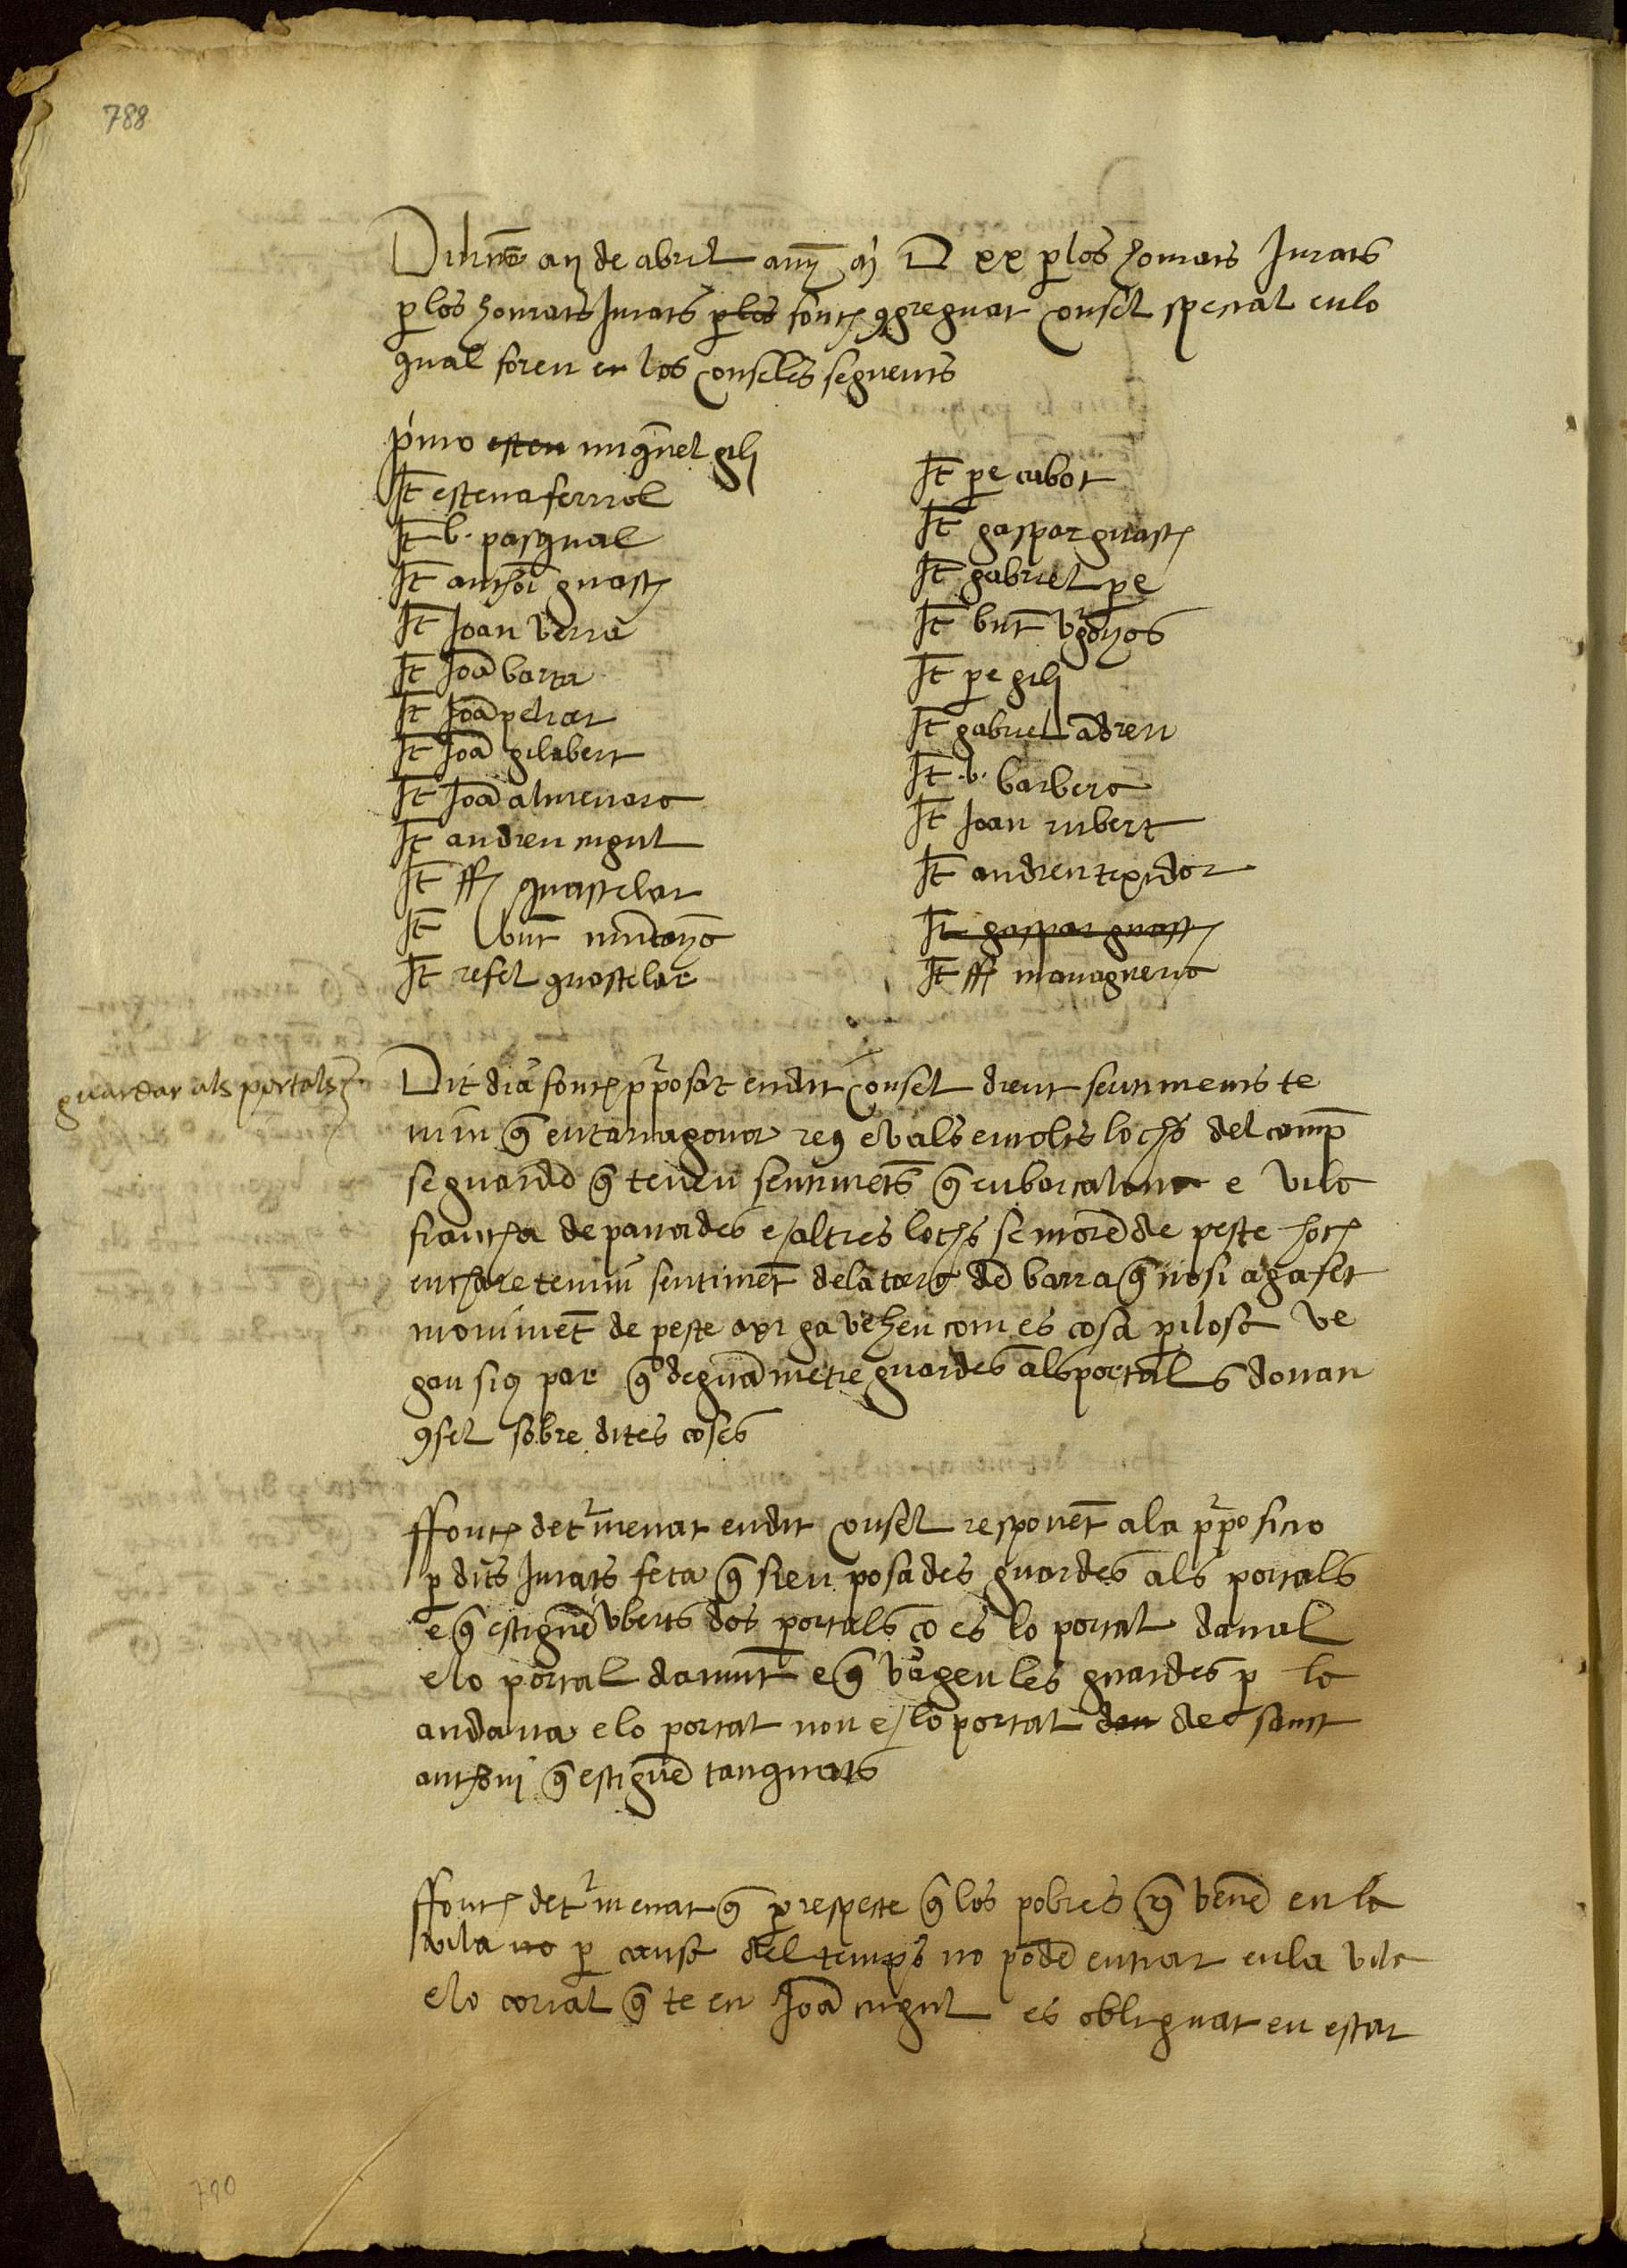 788
de abril any D xx per los honrats Jurats
per los honrats Jurats per los fonch congreguat consel special en lo
qual foren en los consellers seguents
primo esteu miquel gili
It esteva ferriol
It b. pasqual
It anthoni guasch
It Joan verra
It Joã barta
It Joã
It Joã gilabert
It Joã almenara
It andreu cugul
It ff guastelar
It bnt
It refel guastelar
It pe cabot
It gaspar guasch
It gabriel pe
It bnt
It pe gili
It gabriel ãdreu
It .b. barbera
It Joan rubert
It andreu texidor
It gaspar guasch
It ff managuerra
guardar als portals
Dit dia fonch pposat en dit consel dient sentiments te
nim q en tarragona reus e vals e molts lochs del camp
se guardẽ q tenen sentimẽts q en barcalona e vila
francha de panades e altres lochs se morẽ de peste hoch
enchare tenim sentimẽt de la tore dẽ barra q nosi aga fet
moviment de peste axi ga vehen com es cosa perilosa ve
gau sius par q deguã metre guardes als portals donan
consel sobre dites coses
ffonch determenat en dit consel responẽt a la pposicio
per dits Jurats feta q sien posades guardes als portals
e q estiguẽ uberts dos portals ço es lo portal daval
e lo portal damunt e q vagen les guardes per la
andana e lo portal nou e lo portal den de sanct
anthoni q estiguẽ tanquats
ffonch determenat q per respecte q los pobres q venẽ en la
vila no per causa del temps no podẽ entrar en la vila
e lo corral q te en Joã cugul es obliguat en estar
790